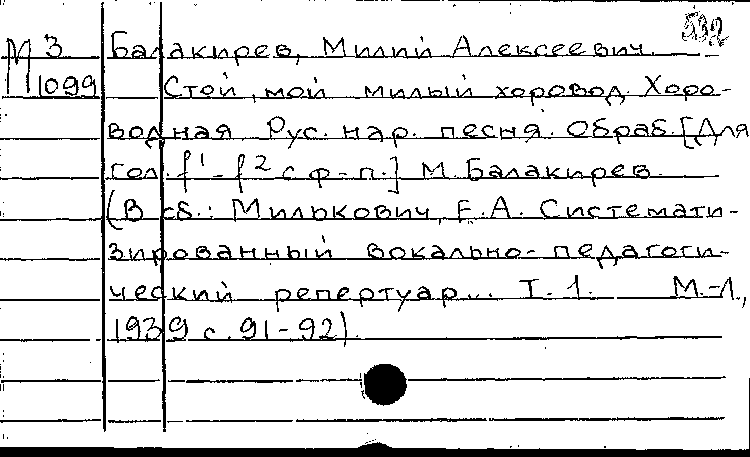 532
М 3 Балакирев, Милий Алексеевич.
1099 Стой, мой милый хоровод. Хоро-
водная Рус. нар. песня. Обраб. [Для
гол. f¹-f² с ф-п.] М. Балакирев.
(В сб.: Милькович, Е.А. Системати-
зированный вокально-педагоги-
ческий репертуар... Т. 1. М.-Л.,
1939 с. 91-92).